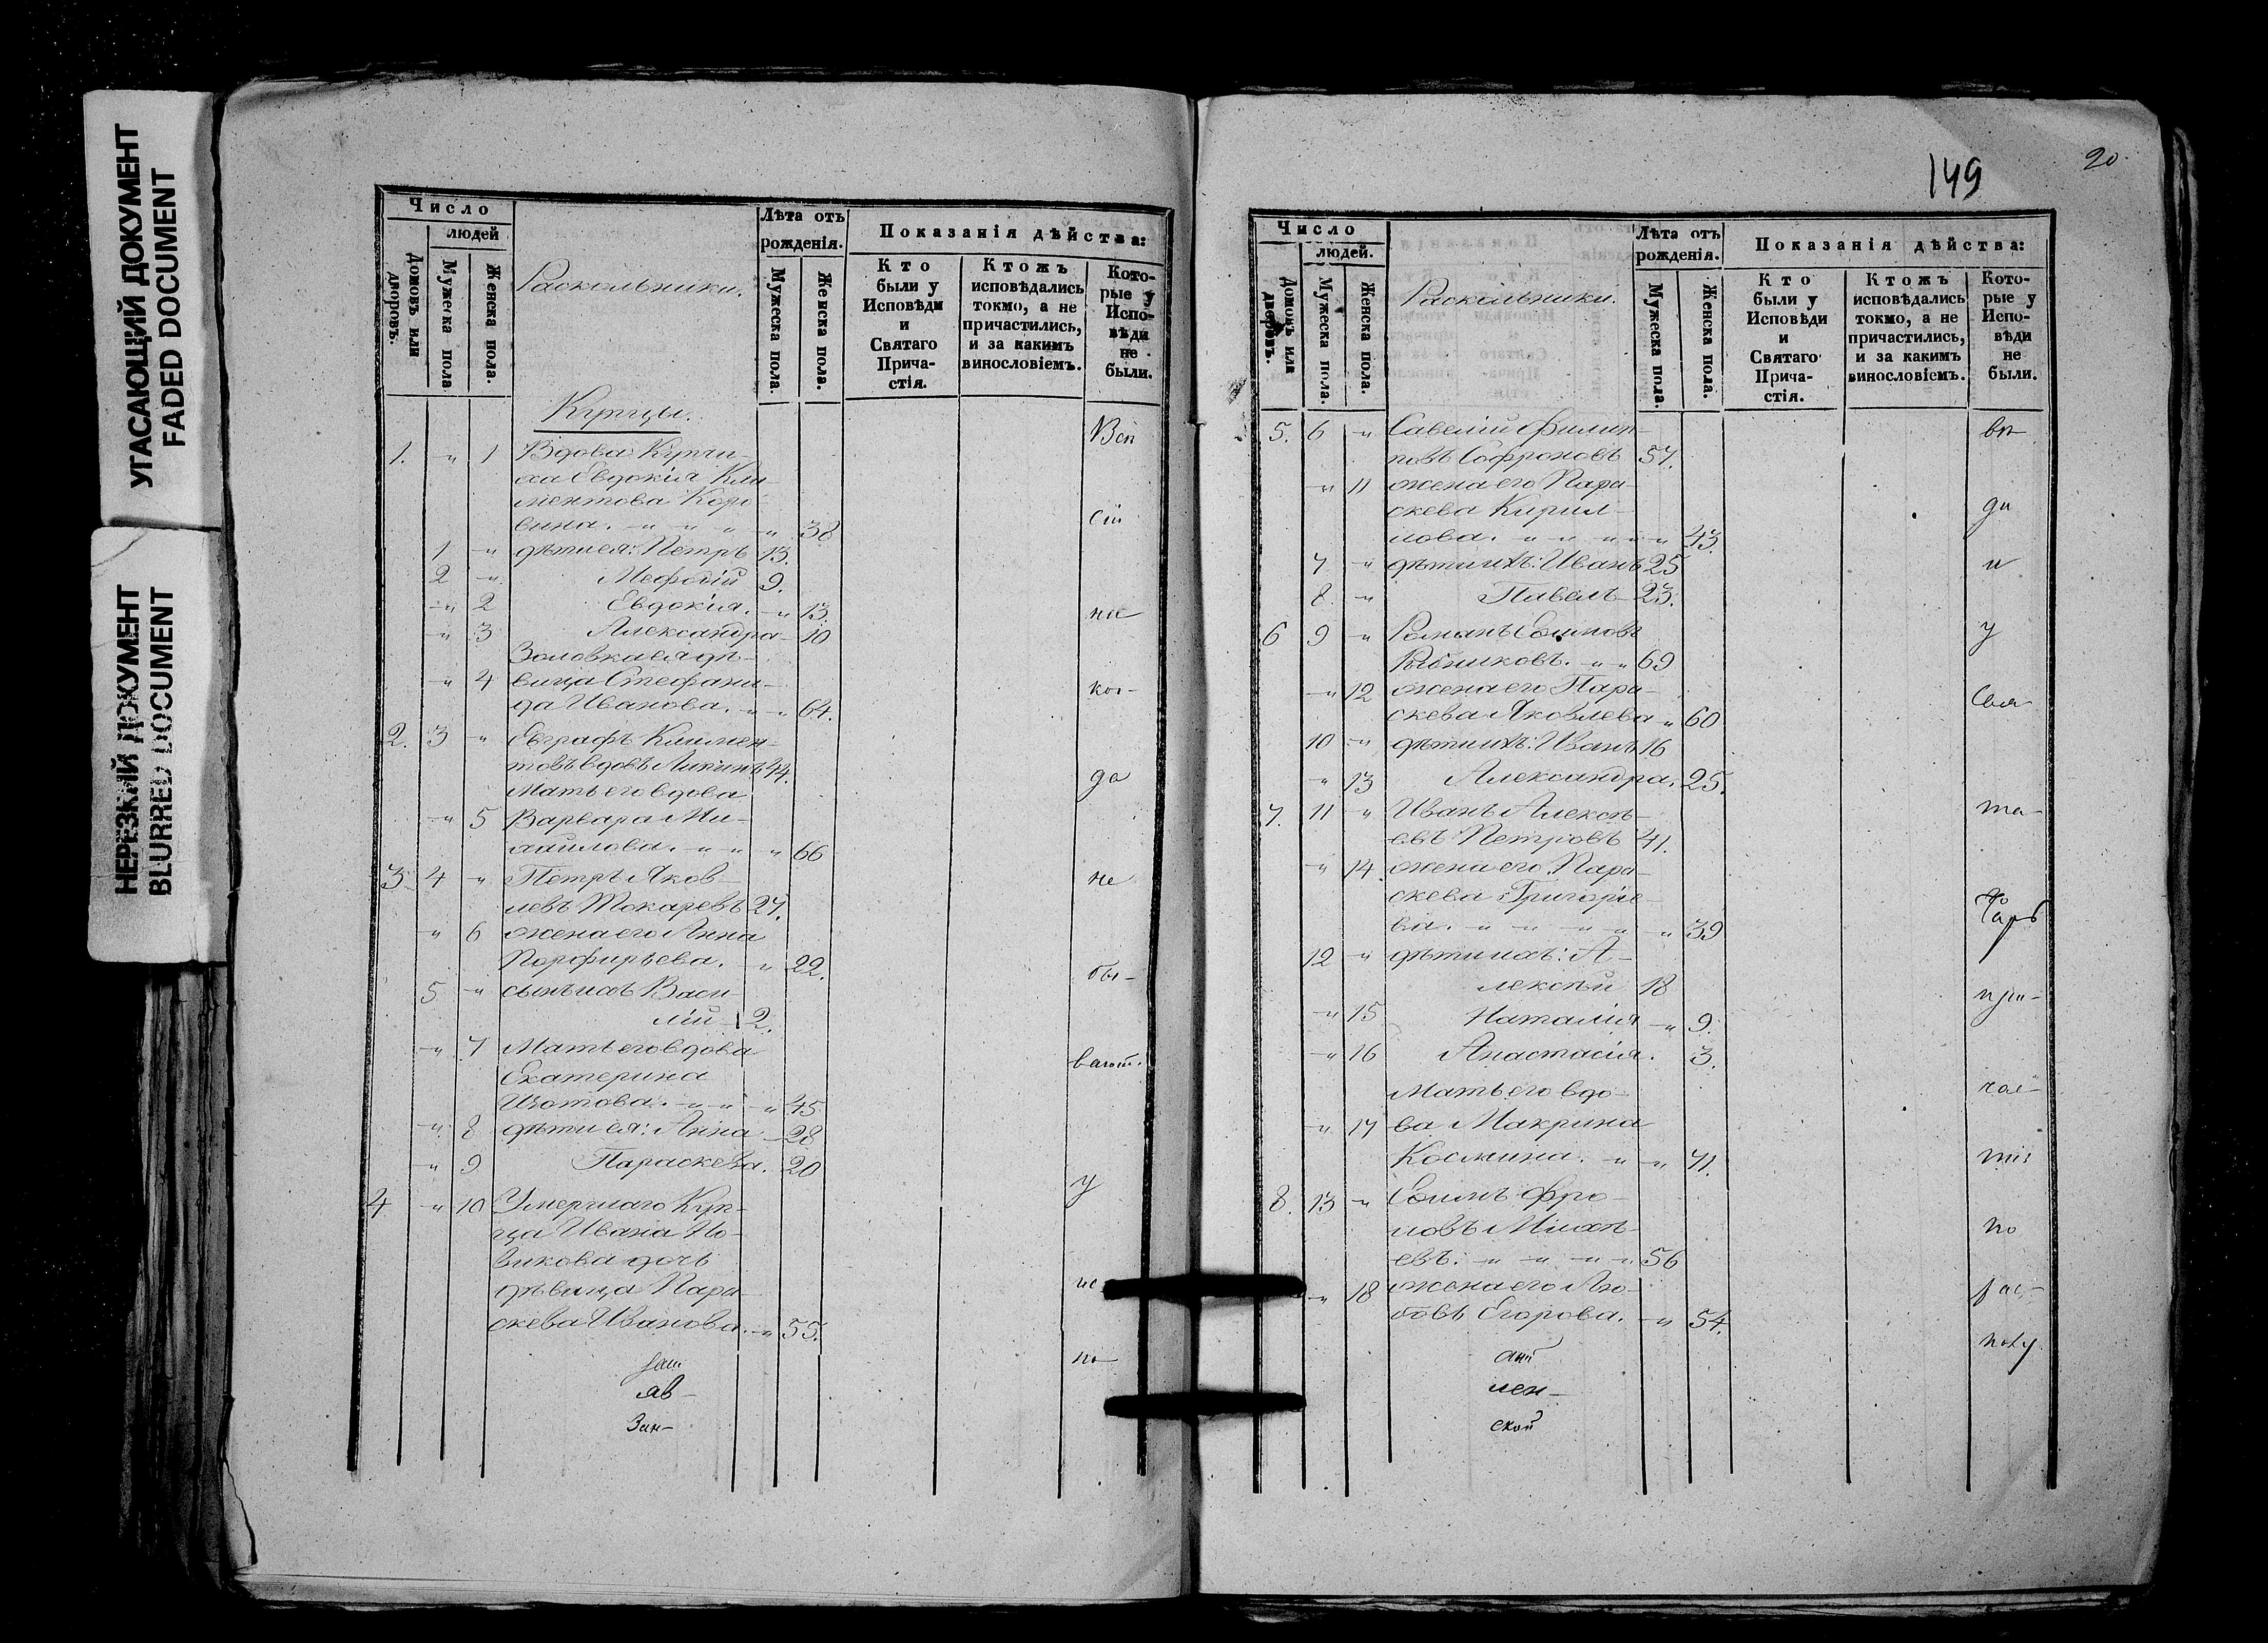 УГАСАЮЩИЙ ДОКУМЕНТ
FADED DOCUMENT
НЕРЕЗКИЙ ДОКУМЕНТ
BLURRED DOCUMENT
Число
людей
Домовъ или дворовъ.
Мужеска пола.
Женска пола.
Раскольники.
Лѣта отъ
рожденія.
Мужеска пола.
Женска пола.
Показанія дѣйства:
Кто
были у
Исповѣди
и
Святаго
Прича-
стія.
Ктожъ
исповѣдались
токмо, а не
причастились,
и за какимъ
винословіемъ.
Кото-
рые у
Испо-
вѣди
не
были.
Купцы.
Всѣ
1. -"- 1 Вдова Купчи-
ха Евдокія Кли-
ментова Коро-
вина. -"- -"- 38
сіи
1 -"- дѣти ея: Петръ 13.
2 -"- Мефодій 9.
-"- 2 Евдокія. -"- 13.
ни
-"- 3 Александра 10
Золовка ея дѣ-
-"- 4 вица Стефани-
да Иванова. -"- 64.
ког-
2. 3 -"- Евграфъ Климен-
товъ вдовъ Липинъ 44.
да
Мать его вдова
-"- 5 Варвара Ми-
хайлова. -"- -"- 66
3 4 -"- Петръ Яков-
не
левъ Токаревъ 27.
-"- 6 жена его Анна
Порфирьева. -"- 22.
бы-
5 -"- сынъ ихъ Васи-
лій 2.
-"- 7 Мать его вдова
вают.
Екатерина
Изотова. -"- -"- 45
-"- 8 дѣти ея: Анна 28
-"- 9 Параскева. 20
у
4 -"- 10 Умершаго Куп-
ца Ивана Но-
викова дочь
дѣвица Пара-
ис
скева Иванова. -"- 55.
по
яв-
149
20
Число
людей.
Домовъ или дворовъ.
Мужеска пола.
Женска пола.
Раскольники.
Лѣта отъ
рожденія.
Мужеска пола.
Женска пола.
Показанія дѣйства:
Кто
были у
Исповѣди
и
Святаго
Прича-
стія.
Ктожъ
исповѣдались
токмо, а не
причастились,
и за какимъ
винословіемъ.
Кото-
рые у
Испо-
вѣди
не
были.
5. 6 -"- Савелій Филип-
вѣ-
повъ Софроновъ 57.
-"- 11 жена его Пара-
скева Кирил-
ди
лова. -"- -"- 43.
7 -"- дѣти ихъ: Иванъ 25
и
8. -"- Павелъ 23.
6 9 -"- Романъ Евимовъ
у
69
-"- 12 жена его Пара-
Свя-
скева Яковлева -"- 60
10 -"- дѣти ихъ: Иванъ 16
-"- 13 Александра. 25.
7. 11 -"- Иванъ Алексѣ-
та-
евъ Петровъ 41.
-"- 14. жена его Пара-
скева Григорie-
ва. -"- -"- 39
12 -"- дѣти ихъ: А-
лексѣй 18
при-
-"- 15 Наталія -"- 9.
-"- 16 Анастасія. 3.
Мать его вдо-
-"- 17 ва Макрина
Космина. -"- -"- 71.
8. 13 -"- Евимъ Фро-
ловъ Михѣ-
по
евъ. -"- -"- 56
-"- 18 жена его Лю-
рас-
бовь Егорова. -"- 54.
колу
лен-
ской